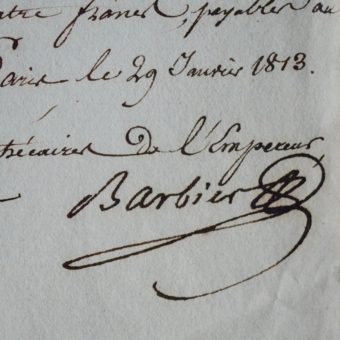 atre francs, payables au
Paris le 29 Janvier 1813.
thécaires de l'Empereur,
Barbier